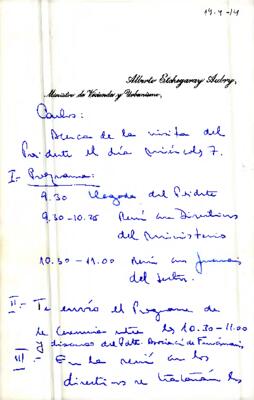 Alberto Etchegaray Aubry,
Ministro de Vivienda y Urbanismo,
Carlos:
Acerca de la visita del
Pesidente el día miércoles 7.
I.- Programa:
9.30 llegada del Pdte
9.30-10.25 Reunión con Directivos
del Ministerio
10.30-11.00 Reunión con
del Sector.
II.- Te envío el Programa de
la Ceremonia entre las 10.30-11.00
y discurso del Pdte. Asociación de Funcionarios
III.- En la reunión con los
directivos se tratarán los